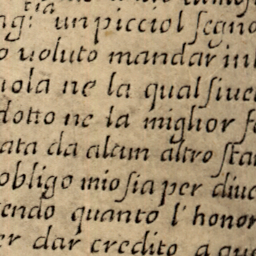 tia
ag: un picciol segno
o uoluto mandar in l
uola ne la qual si ue
dotto ne la miglior fo
ata da alcun altro sta
obligo mio sia per diue
endo quanto l'honor
er dar credito a que